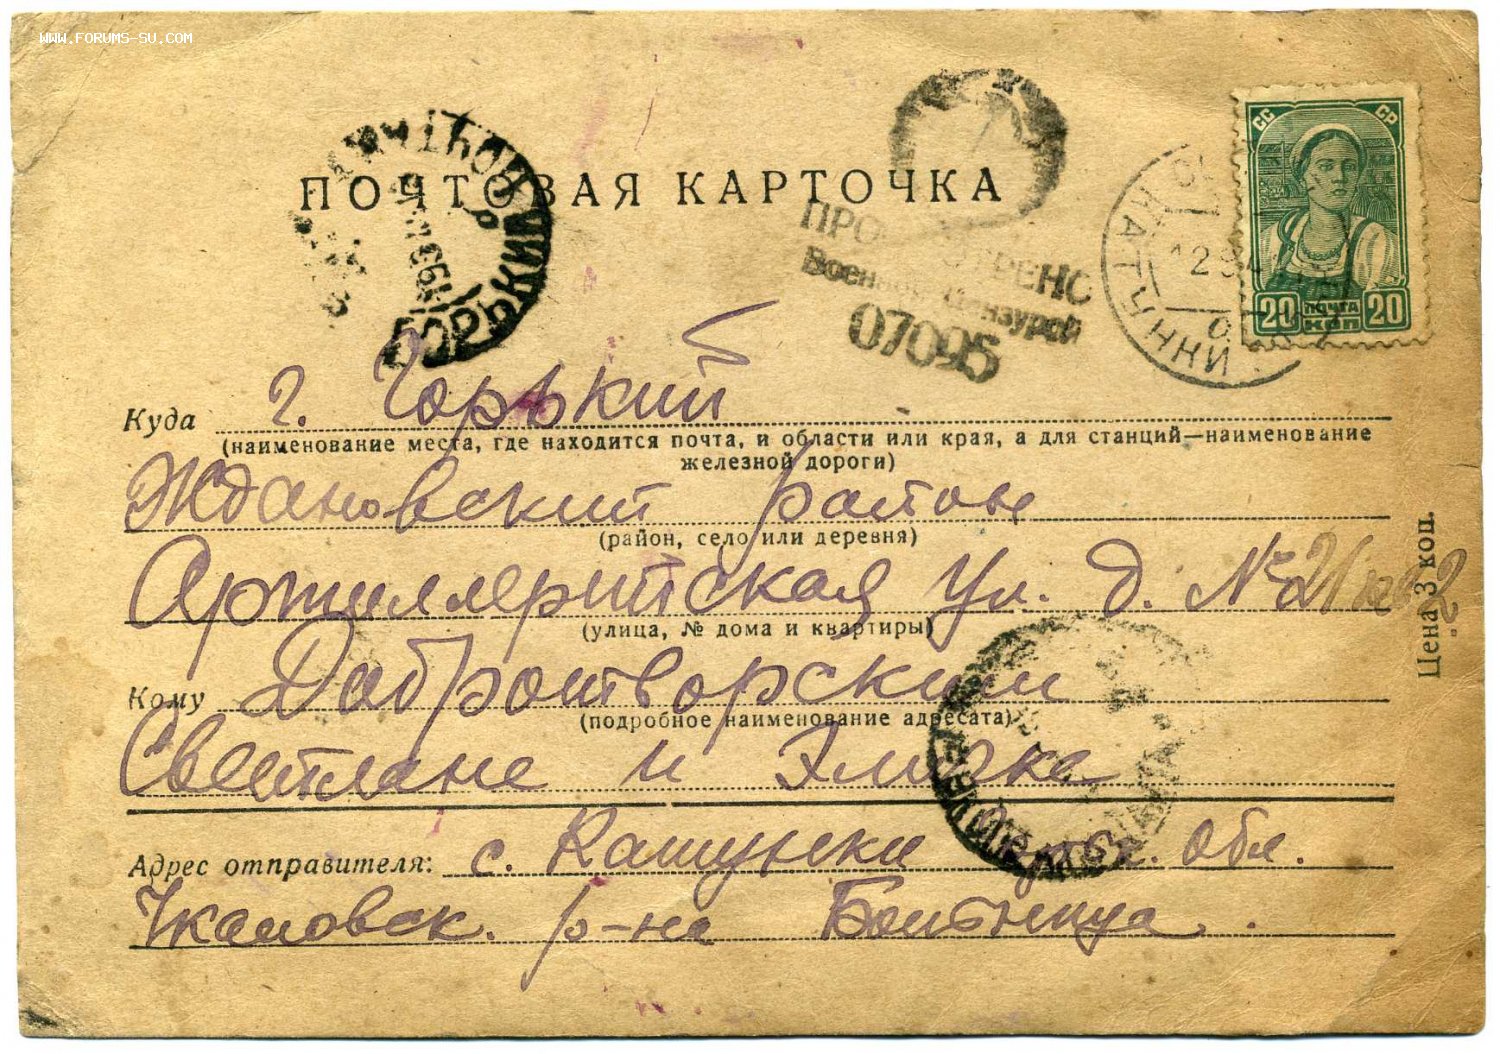 WWW.FORUMS-SU.COM
СССР
20 ПОЧТА КОП 20
ПОЧТОВАЯ КАРТОЧКА
Военной Цензурой
07095
ГОРЬКИЙ
Куда г. Горький
(наименование места, где находится почта, и области или края, а для станций—наименование
железной дороги)
Ждановский район
(район, село или деревня)
Артиллерийская ул. д. № 21
(улица, № дома и квартиры)
Кому Добротворским
(подробное наименование адресата)
Светлане и
Адрес отправителя: с. обл.
Чкаловск. р-на Больница.
Цена 3 коп.